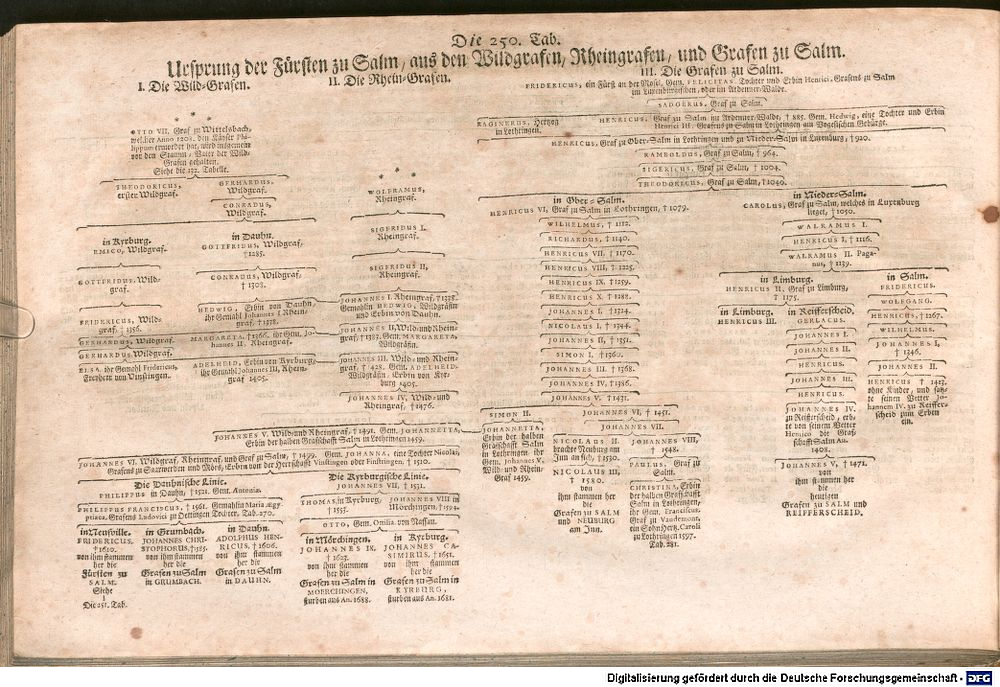 Die 250. Tab.
Ursprung der Fürsten zu Salm, aus den Wildgrafen, Rheingrafen, und Grafen zu Salm.
I. Die Wild-Grafen.
OTTO VII. Graf zu Wittelsbach,
welcher Anno 1208. den Känser Phi-
lippum ermordet hat, wird insgemein
vor den Stamm-Vater der Wild-
Grafen gehalten.
Siehe die 132. Tabelle.
THEODORICUS,
erster Wildgraf.
GERHARDUS,
Wildgraf.
CONRADUS,
Wildgraf.
in Kyrburg.
EMICO, Wildgraf.
in Dauhn.
GOTTFRIDUS, Wildgraf,
† 1285.
GOTTFRIDUS, Wild-
graf.
CONRADUS, Wildgraf,
† 1308.
FRIDERICUS, Wild-
graf. † 1356.
HEDWIG, Erbin von Dauhn,
ihr Gemahl Johannes I. Rhein-
graf, † 1338.
GERHARDUS, Wildgraf.
MARGARETA, † 1366. ihr Gem. Jo-
hannes II. Rheingraf.
GERHARDUS, Wildgraf.
ELSA, ihr Gemahl Fridericus,
Freyherr von Vinstingen.
ADELHEID, Erbin von Kyrburg,
ihr Gemahl Johannes III. Rhein-
graf 1405.
II. Die Rhein-Grafen.
WOLFRAMUS,
Rheingraf.
SIGFRIDUS I.
Rheingraf.
SIGFRIDUS II,
Rheingraf.
JOHANNES I. Rheingraf, † 1338.
Gemahlin HEDWIG, Wildgräfin
und Erbin von Dauhn.
JOHANNES II, Wild- und Rhein-
graf, † 1383. Gem. MARGARETA,
Wildgräfin.
JOHANNES III. Wild- und Rhein-
graf, † 1428. Gem. ADELHEID,
Wildgräfin, Erbin von Kyr-
burg 1405.
JOHANNES IV, Wild- und
Rheingraf, † 1476.
JOHANNES V. Wild- und Rheingraf, † 1491. Gem. JOHANNETTA,
Erbin der halben Grafschafft Salm in Lothringen 1459.
JOHANNES VI. Wildgraf, Rheingraf, und Graf zu Salm, † 1499. Gem. JOHANNA, eine Tochter Nicolai,
Grafens zu Saarwerden und Mörs, Erbin von der Herrschafft Vinstingen oder Finstringen, † 1510.
Die Dauhnische Linie.
PHILIPPUS in Dauhn, † 1521. Gem. Antonia.
PHILIPPUS FRANCISCUS, † 1561. Gemahlin Maria Ægy-
ptiaca, Grafens Ludovici zu Oettingen Tochter. Tab. 270.
in Neufville.
FRIDERICUS,
† 1610.
von ihm stammen
her die
Fürsten zu
SALM.
Siehe
Die 251. Tab.
in Grumbach.
JOHANNES CHRI-
STOPHORUS, † 1585.
von ihm stammen
her die
Grafen zu Salm
in GRUMBACH.
in Dauhn.
ADOLPHUS HEN-
RICUS, † 1606.
von ihm stammen
her die
Grafen zu Salm
in DAUHN.
Die Kyrburgische Linie.
JOHANNES VII, † 1531.
THOMAS, in Kyrburg,
† 1553.
JOHANNES VIII in
Mörchingen, † 1594.
OTTO, Gem. Otilia von Nassau.
in Mörchingen.
JOHANNES IX.
† 1623.
von ihm stammen
her die
Grafen zu Salm in
MOERCHINGEN,
sturben aus An. 1688.
in Kyrburg.
JOHANNES CA-
SIMIRUS, † 1651.
von ihm stammen
her die
Grafen zu Salm in
KYRBURG,
sturben aus An. 1681.
III. Die Grafen zu Salm.
FRIDERICUS, ein Fürst an der Mosel, Gem. FELICITAS, Tochter und Erbin Henrici, Grafens zu Salm
im Luxenburgischen, oder im Ardenner-Walde.
SADGERUS, Graf zu Salm.
RAGINERUS, Hertzog
in Lothringen.
HENRICUS, Graf zu Salm im Ardenner-Walde, † 885. Gem. Hedwig, eine Tochter und Erbin
Henrici III. Grafens zu Salm in Lothringen am Vogesischen Gebürge.
HENRICUS, Graf zu Ober-Salm in Lothringen und zu Nieder-Salm in Luxenburg, † 920.
RAMBOLDUS, Graf zu Salm, † 964.
SIGERICUS, Graf zu Salm, † 1004.
THEODORICUS, Graf zu Salm, † 1040.
in Ober-Salm.
HENRICUS VI, Graf zu Salm in Lothringen, † 1079.
WILHELMUS, † 1112.
RICHARDUS, † 1140.
HENRICUS VII, † 1170.
HENRICUS VIII, † 1225.
HENRICUS IX, † 1259.
HENRICUS X, † 1288.
JOHANNES I, † 1314.
NICOLAUS I, † 1344.
JOHANNES II, † 1351.
SIMON I, † 1360.
JOHANNES III, † 1368.
JOHANNES IV, † 1386.
JOHANNES V, † 1431.
SIMON II.
JOHANNETTA,
Erbin der halben
Grafschafft Salm
in Lothringen, ihr
Gem. Johannes V.
Wild- und Rhein-
Graf 1459.
JOHANNES VI, † 1451.
JOHANNES VII.
NICOLAUS II.
brachte Neuburg am
Inn an sich, † 1530.
NICOLAUS III,
† 1580.
von
ihm stammen her
die
Grafen zu SALM
und NEUBURG
am Inn.
JOHANNES VIII,
† 1548.
PAULUS, Graf zu
Salm.
CHRISTINA, Erbin
der halben Grafschafft
Salm in Lothringen,
ihr Gem. Franciscus,
Graf zu Vaudemont,
ein Sohn Hertz. Caroli
zu Lothringen 1597.
Tab. 281.
in Nieder-Salm.
CAROLUS, Graf zu Salm, welches in Luxenburg
lieget, † 1050.
WALRAMUS I.
HENRICUS I, † 1116.
WALRAMUS II. Paga-
nus, † 1139.
in Limburg.
HENRICUS II, Graf zu Limburg,
† 1175.
in Limburg.
HENRICUS III.
in Reifferscheid.
GERLACUS.
JOHANNES I.
JOHANNES II.
HENRICUS.
JOHANNES III.
HENRICUS.
JOHANNES IV.
zu Reifferscheid, erb-
te von seinem Vetter
Henrico die Graf-
schafft Salm An.
1408.
JOHANNES V, † 1471.
von
ihm stammen her
die
heutigen
Grafen zu SALM und
REIFFERSCHEID.
in Salm.
FRIDERICUS.
WOLFGANG.
HENRICUS, † 1267.
WILHELMUS.
JOHANNES I,
† 1346.
JOHANNES II.
HENRICUS † 1413,
ohne Kinder, und satz-
te seinen Vetter Jo-
hannem IV. zu Reiffer-
scheid zum Erben
ein.
Digitalisierung gefördert durch die Deutsche Forschungsgemeinschaft - DFG